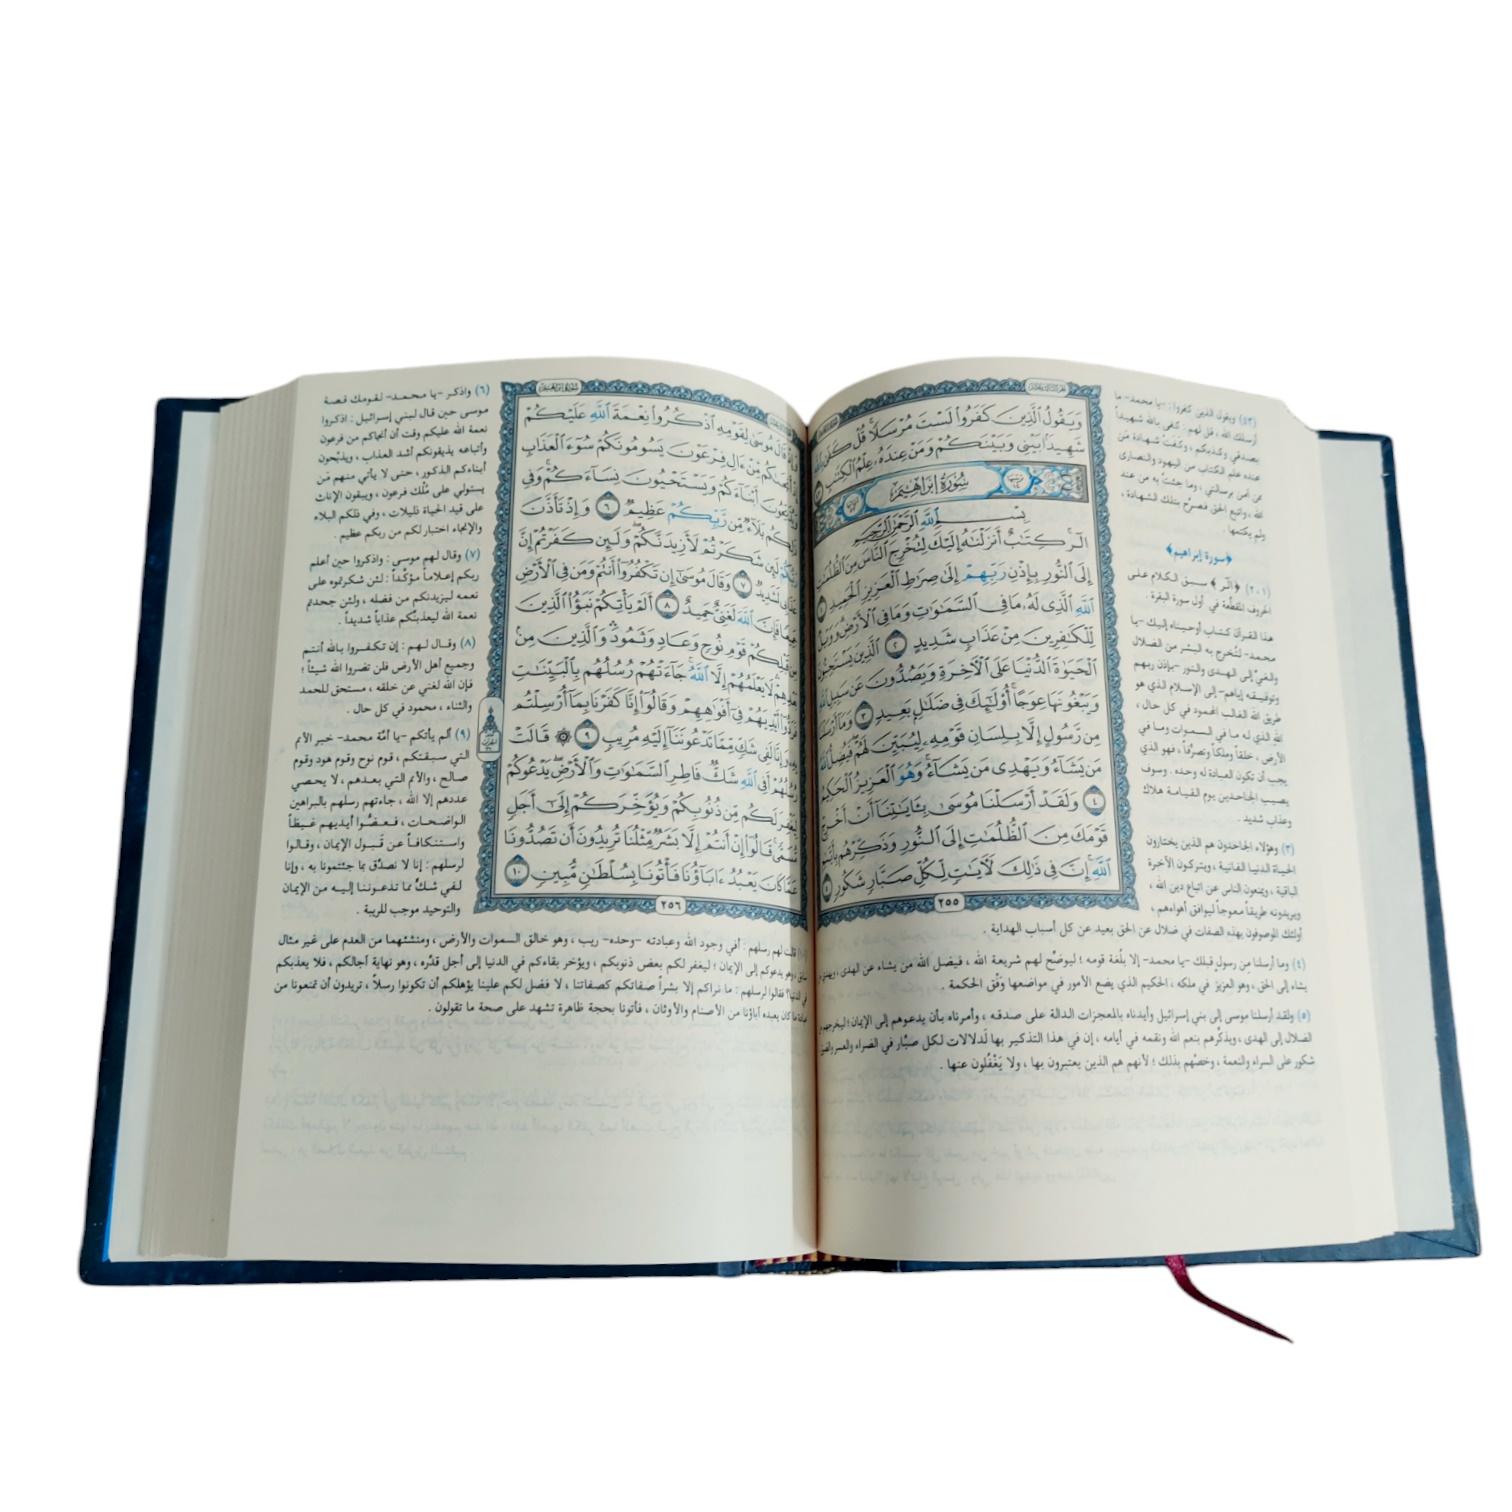 وَيَقُولُ ٱلَّذِينَ كَفَرُوا۟ لَسْتَ مُرْسَلًا ۚ قُلْ كَفَىٰ
شَهِيدًۢا بَيْنِى وَبَيْنَكُمْ وَمَنْ عِندَهُۥ عِلْمُ ٱلْكِتَٰبِ
سُورَةُ إِبْرَاهِيمَ
بِسْمِ ٱللَّهِ ٱلرَّحْمَٰنِ ٱلرَّحِيمِ
الٓر ۚ كِتَٰبٌ أَنزَلْنَٰهُ إِلَيْكَ لِتُخْرِجَ ٱلنَّاسَ مِنَ ٱلظُّلُمَٰتِ
إِلَى ٱلنُّورِ بِإِذْنِ رَبِّهِمْ إِلَىٰ صِرَٰطِ ٱلْعَزِيزِ ٱلْحَمِيدِ ١
ٱللَّهِ ٱلَّذِى لَهُۥ مَا فِى ٱلسَّمَٰوَٰتِ وَمَا فِى ٱلْأَرْضِ ۗ وَوَيْلٌ
لِّلْكَٰفِرِينَ مِنْ عَذَابٍ شَدِيدٍ ٢ ٱلَّذِينَ يَسْتَحِبُّونَ
ٱلْحَيَوٰةَ ٱلدُّنْيَا عَلَى ٱلْأَخِرَةِ وَيَصُدُّونَ عَن سَبِيلِ ٱللَّهِ
وَيَبْغُونَهَا عِوَجًا ۚ أُو۟لَٰٓئِكَ فِى ضَلَٰلٍۭ بَعِيدٍ ٣ وَمَآ أَرْسَلْنَا
مِن رَّسُولٍ إِلَّا بِلِسَانِ قَوْمِهِۦ لِيُبَيِّنَ لَهُمْ ۖ فَيُضِلُّ ٱللَّهُ
مَن يَشَآءُ وَيَهْدِى مَن يَشَآءُ ۚ وَهُوَ ٱلْعَزِيزُ ٱلْحَكِيمُ
٤ وَلَقَدْ أَرْسَلْنَا مُوسَىٰ بِـَٔايَٰتِنَآ أَنْ أَخْرِجْ
قَوْمَكَ مِنَ ٱلظُّلُمَٰتِ إِلَى ٱلنُّورِ وَذَكِّرْهُم بِأَيَّىٰمِ
ٱللَّهِ ۚ إِنَّ فِى ذَٰلِكَ لَأَيَٰتٍ لِّكُلِّ صَبَّارٍ شَكُورٍ ٥
٢٥٥
(٤٣) ويقول الذين كفروا: -يا محمد- ما
أرسلك الله ، قل لهم : كفى بالله شهيداً
بصدقي وكذبكم ، وكفت شهادة من
عنده علم الكتاب من اليهود والنصارى
ممن آمن برسالتي ، وما جئت به من عند
الله ، واتبع الحق فصرح بتلك الشهادة ،
ولم يكتمها .
﴿سورة إبراهيم﴾
(٢،١) ﴿الٓر﴾ سبق الكلام على
الحروف المقطعة في أول سورة البقرة .
هذا القرآن كتاب أوحيناه إليك -يا
محمد- لتُخرج به البشر من الضلال
والغيّ إلى الهدى والنور -بإذن ربهم
وتوفيقه إياهم- إلى الإسلام الذي هو
طريق الله الغالب المحمود في كل حال ،
الله الذي له ما في السموات وما في
الأرض ، خلقاً وملكاً وتصرفاً ، فهو الذي
يجب أن تكون العبادة له وحده . وسوف
يصيب الجاحدين يوم القيامة هلاك
وعذاب شديد .
(٣) وهؤلاء الجاحدون هم الذين يختارون
الحياة الدنيا الفانية ، ويتركون الآخرة
الباقية ، ويمنعون الناس عن اتباع دين الله ،
ويريدونه طريقاً معوجاً ليوافق أهواءهم ،
أولئك الموصوفون بهذه الصفات في ضلال عن الحق بعيد عن كل أسباب الهداية .
(٤) وما أرسلنا من رسول قبلك -يا محمد- إلا بلُغة قومه ؛ ليوضّح لهم شريعة الله ، فيضل الله من يشاء عن الهدى ، ويهدي من
يشاء إلى الحق ، وهو العزيز في ملكه ، الحكيم الذي يضع الأمور في مواضعها وَفْق الحكمة .
(٥) ولقد أرسلنا موسى إلى بني إسرائيل وأيدناه بالمعجزات الدالة على صدقه ، وأمرناه بأن يدعوهم إلى الإيمان ؛ ليخرجهم من
الضلال إلى الهدى ، ويذكّرهم بنعم الله ونقمه في أيامه ، إن في هذا التذكير بها لَدلالات لكل صبَّار في الضراء والعسر والضيق
شكور على السراء والنعمة ، وخصّهم بذلك ؛ لأنهم هم الذين يعتبرون بها ، ولا يَغْفُلون عنها .
وَإِذْ قَالَ مُوسَىٰ لِقَوْمِهِ ٱذْكُرُوا۟ نِعْمَةَ ٱللَّهِ عَلَيْكُمْ
إِذْ أَنجَىٰكُم مِّنْ ءَالِ فِرْعَوْنَ يَسُومُونَكُمْ سُوٓءَ ٱلْعَذَابِ
وَيُذَبِّحُونَ أَبْنَآءَكُمْ وَيَسْتَحْيُونَ نِسَآءَكُمْ ۚ وَفِى
ذَٰلِكُم بَلَآءٌ مِّن رَّبِّكُمْ عَظِيمٌ ٦ وَإِذْ تَأَذَّنَ
رَبُّكُمْ لَئِن شَكَرْتُمْ لَأَزِيدَنَّكُمْ ۖ وَلَئِن كَفَرْتُمْ إِنَّ
عَذَابِى لَشَدِيدٌ ٧ وَقَالَ مُوسَىٰٓ إِن تَكْفُرُوٓا۟ أَنتُمْ وَمَن فِى ٱلْأَرْضِ
جَمِيعًا فَإِنَّ ٱللَّهَ لَغَنِىٌّ حَمِيدٌ ٨ أَلَمْ يَأْتِكُمْ نَبَؤُا۟ ٱلَّذِينَ
مِن قَبْلِكُمْ قَوْمِ نُوحٍ وَعَادٍ وَثَمُودَ ۛ وَٱلَّذِينَ مِنۢ
بَعْدِهِمْ ۛ لَا يَعْلَمُهُمْ إِلَّا ٱللَّهُ ۚ جَآءَتْهُمْ رُسُلُهُم بِٱلْبَيِّنَٰتِ
فَرَدُّوٓا۟ أَيْدِيَهُمْ فِىٓ أَفْوَٰهِهِمْ وَقَالُوٓا۟ إِنَّا كَفَرْنَا بِمَآ أُرْسِلْتُم
بِهِۦ وَإِنَّا لَفِى شَكٍّ مِّمَّا تَدْعُونَنَآ إِلَيْهِ مُرِيبٍ ٩ ۞ قَالَتْ
رُسُلُهُمْ أَفِى ٱللَّهِ شَكٌّ فَاطِرِ ٱلسَّمَٰوَٰتِ وَٱلْأَرْضِ ۖ يَدْعُوكُمْ
لِيَغْفِرَ لَكُم مِّن ذُنُوبِكُمْ وَيُؤَخِّرَكُمْ إِلَىٰٓ أَجَلٍ
مُّسَمًّى ۚ قَالُوٓا۟ إِنْ أَنتُمْ إِلَّا بَشَرٌ مِّثْلُنَا تُرِيدُونَ أَن تَصُدُّونَا
عَمَّا كَانَ يَعْبُدُ ءَابَآؤُنَا فَأْتُونَا بِسُلْطَٰنٍ مُّبِينٍ ١٠
٢٥٦
(٦) واذكر -يا محمد- لقومك قصة
موسى حين قال لبني إسرائيل : اذكروا
نعمة الله عليكم وقت أن أنجاكم من فرعون
وأتباعه يذيقونكم أشد العذاب ، ويذبّحون
أبناءكم الذكور ، حتى لا يأتي منهم مَن
يستولي على مُلْك فرعون ، ويبقون الإناث
على قيد الحياة ذليلات ، وفي ذلكم البلاء
والإنجاء اختبار لكم من ربكم عظيم .
(٧) وقال لهم موسى : واذكروا حين أعلم
ربكم إعلاماً مؤكَّداً : لئن شكرتموه على
نعمه ليزيدنكم من فضله ، ولئن جحدتم
نعمة الله ليعذبنّكم عذاباً شديداً .
(٨) وقال لهم : إن تكفروا بالله أنتم
وجميع أهل الأرض فلن تضروا الله شيئاً ؛
فإن الله لغني عن خلقه ، مستحق للحمد
والثناء ، محمود في كل حال .
(٩) ألم يأتكم -يا أمَّة محمد- خبر الأمم
التي سبقتكم ، قوم نوح وقوم هود وقوم
صالح ، والأمم التي بعدهم ، لا يحصي
عددهم إلا الله ، جاءتهم رسلهم بالبراهين
الواضحات ، فعضُّوا أيديهم غيظاً
واستنكافاً عن قَبول الإيمان ، وقالوا
لرسلهم : إنا لا نصدِّق بما جئتمونا به ، وإنا
لفي شكٍّ مما تدعوننا إليه من الإيمان
والتوحيد موجب للريبة .
قالت لهم رسلهم : أفي وجود الله وعبادته -وحده- ريب ، وهو خالق السموات والأرض ، ومنشئهما من العدم على غير مثال
سابق ، وهو يدعوكم إلى الإيمان ؛ ليغفر لكم بعض ذنوبكم ، ويؤخر بقاءكم في الدنيا إلى أجل قدَّره ، وهو نهاية آجالكم ، فلا يعذبكم
في الدنيا؟ فقالوا لرسلهم : ما نراكم إلا بشراً صفاتكم كصفاتنا ، لا فضل لكم علينا يؤهلكم أن تكونوا رسلاً ، تريدون أن تمنعونا من
عبادة ما كان يعبده آباؤنا من الأصنام والأوثان ، فأتونا بحجة ظاهرة تشهد على صحة ما تقولون .